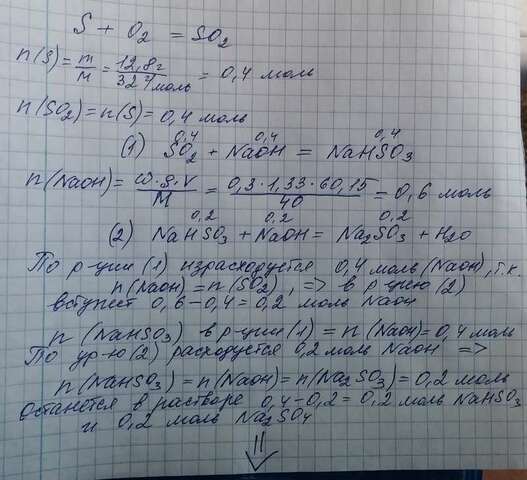 S + O₂ = SO₂
n(S) = m/M = 12,8г/32 г/моль = 0,4 моль
n(SO₂) = n(S) = 0,4 моль
0,4 0,4 0,4
(1) SO₂ + NaOH = NaHSO₃
n(NaOH) = ω·ρ·V/M = 0,3·1,33·60,15/40 = 0,6 моль
0,2 0,2 0,2
(2) NaHSO₃ + NaOH = Na₂SO₃ + H₂O
По р-ции (1) израсходуется 0,4 моль (NaOH), т.к.
n(NaOH) = n(SO₂), => в р-цию (2)
вступает 0,6-0,4=0,2 моль NaOH
n (NaHSO₃) в р-ции (1) = n (NaOH) = 0,4 моль
По ур-ю (2) расходуется 0,2 моль NaOH =>
n(NaHSO₃) = n(NaOH) = n(Na₂SO₃) = 0,2 моль
Останется в растворе 0,4-0,2 = 0,2 моль NaHSO₃
и 0,2 моль Na₂SO₄